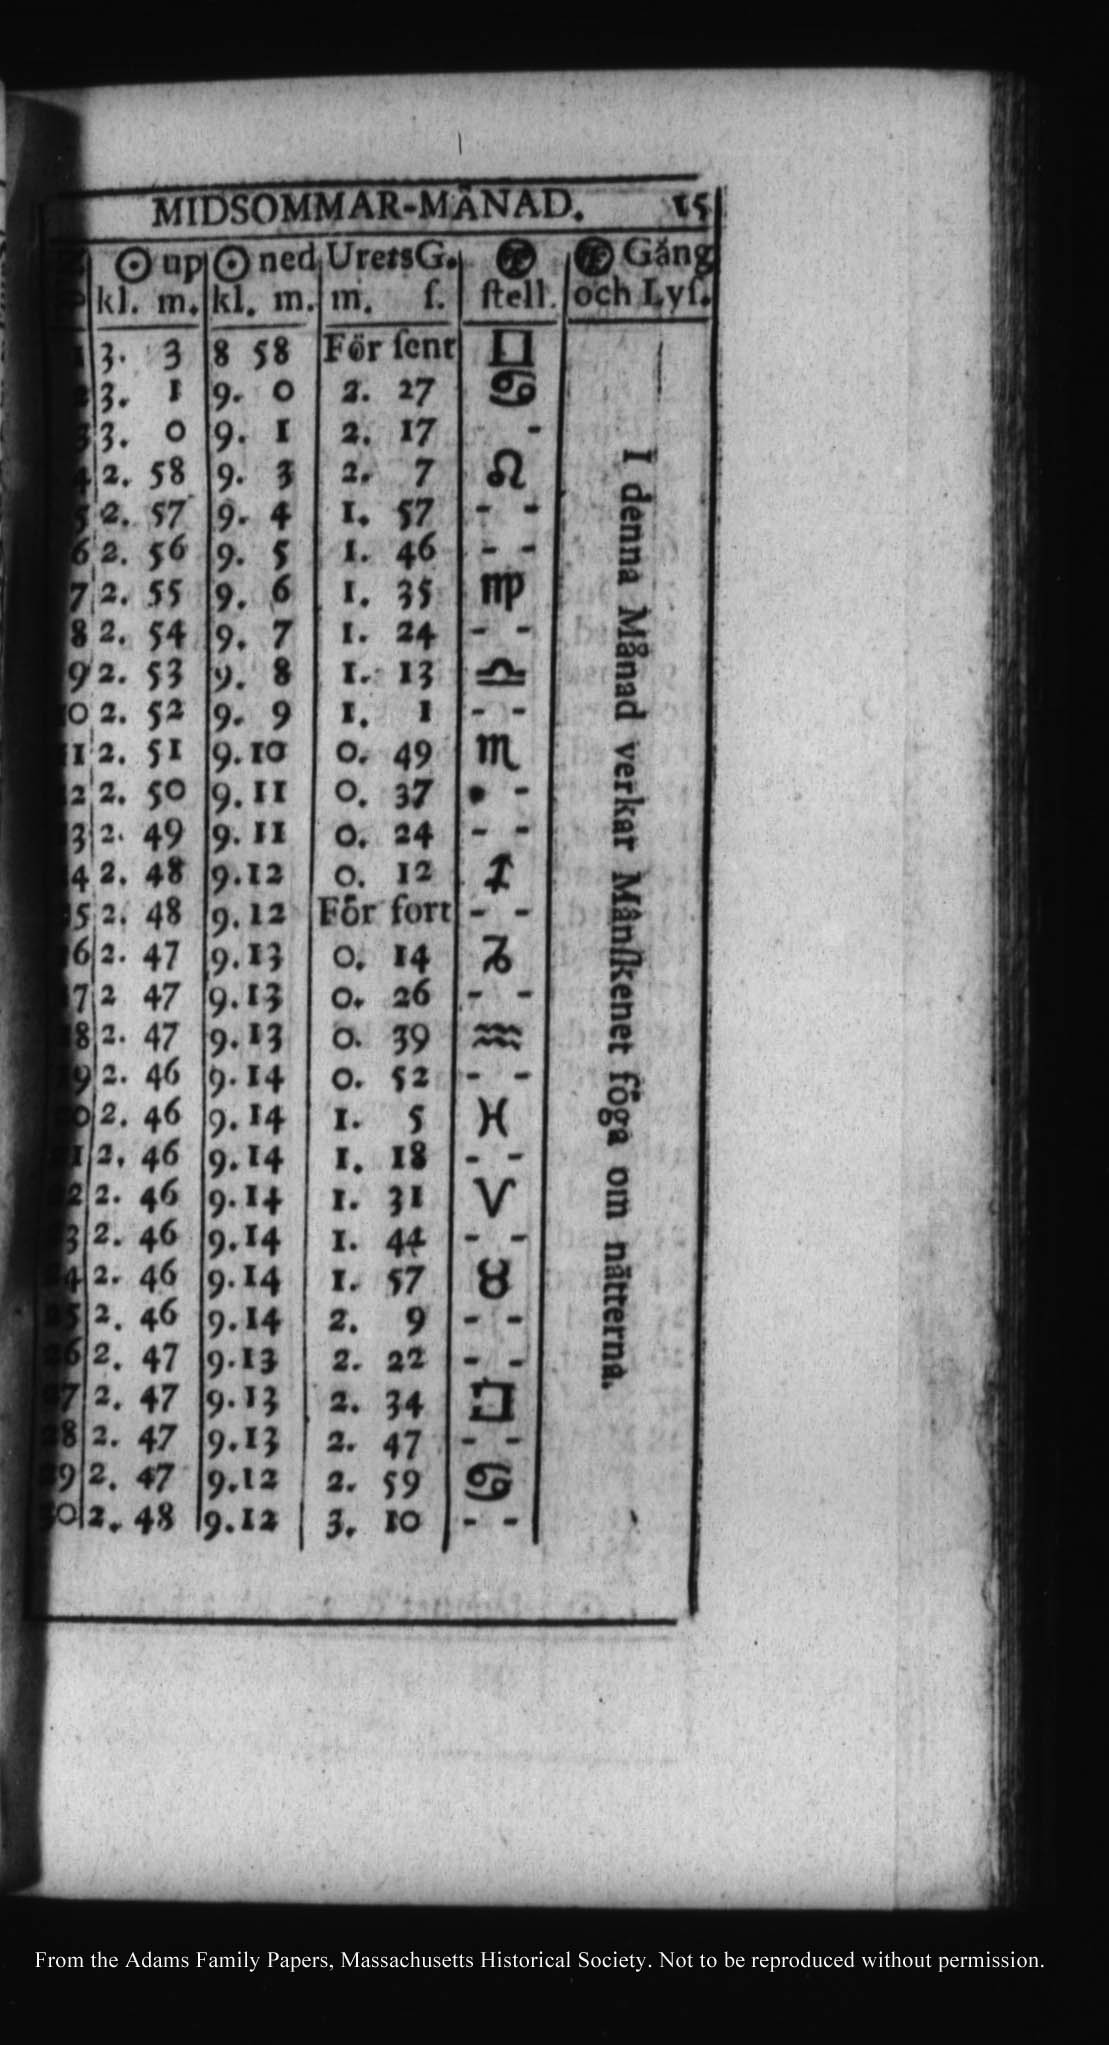 MIDSOMMAR-MÅNAD. 15
☉ up ☉ ned UretsG. Gång
kl. m. kl. m. m. ſ. ſtell. och Lyſ.
1 3. 3 8 58 För ſent ♊
2 3. 1 9. 0 2. 27 ♋
3 3. 0 9. 1 2. 17 -
4 2. 58 9. 3 2. 7 ♌
5 2. 57 9. 4 1. 57 - -
6 2. 56 9. 5 1. 46 - -
7 2. 55 9. 6 1. 35 ♍
8 2. 54 9. 7 1. 24 - -
9 2. 53 9. 8 1. 13 ♎
0 2. 52 9. 9 1. 1 - -
11 2. 51 9. 10 0. 49 ♏
2 2. 50 9. 11 0. 37 - -
3 2. 49 9. 11 0. 24 - -
4 2. 48 9. 12 0. 12 ♐
5 2. 48 9. 12 För fort - -
6 2. 47 9. 13 0. 14 ♑
7 2 47 9. 13 0. 26 - -
8 2. 47 9. 13 0. 39 ♒
9 2. 46 9. 14 0. 52 - -
0 2. 46 9. 14 1. 5 ♓
1 2. 46 9. 14 1. 18 - -
2 2. 46 9. 14 1. 31 ♈
3 2. 46 9. 14 1. 44 - -
4 2. 46 9. 14 1. 57 ♉
5 2. 46 9. 14 2. 9 - -
6 2. 47 9. 13 2. 22 - -
7 2. 47 9. 13 2. 34 ♊
8 2. 47 9. 13 2. 47 - -
9 2. 47 9. 12 2. 59 ♋
0 2. 48 9. 12 3. 10 - -
I denna Månad verkar Månſkenet föga om nätterna.
From the Adams Family Papers, Massachusetts Historical Society. Not to be reproduced without permission.